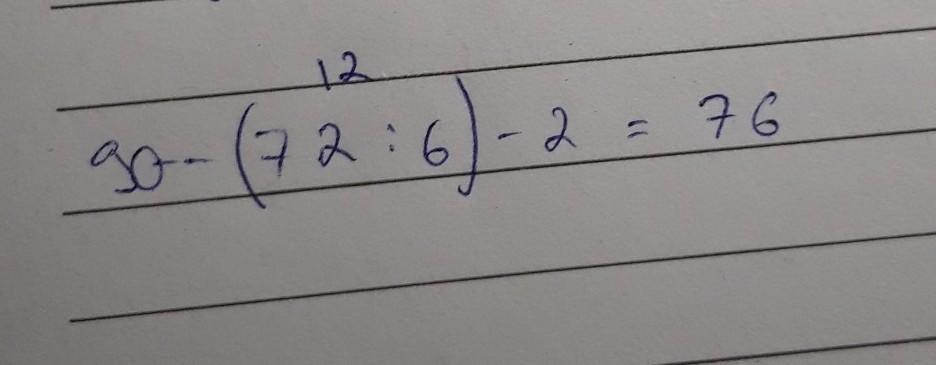 12
90-(72:6)-2 = 76